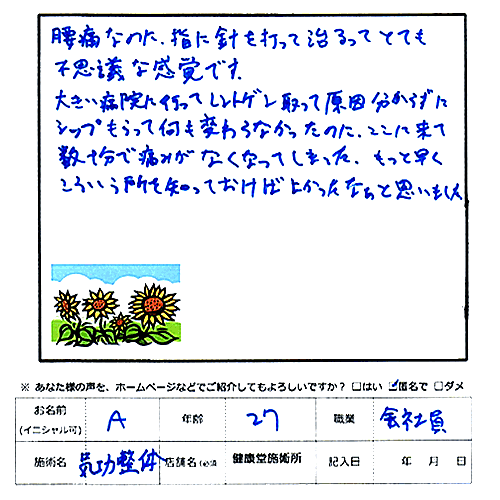 腰痛なのに、指に針を打って治るってとても
不思議な感覚です。
大きい病院に行ってレントゲン取って原因分からずに
シップもらって何も変わらなかったのに、ここに来て
数十分で痛みがなくなってしまった。もっと早く
こういう所を知っておけばよかったなぁと思いました
※ あなた様の声を、ホームページなどでご紹介してもよろしいですか？ □はい ☑匿名で □ダメ
お名前 (イニシャル可) A 年齢 27 職業 会社員
施術名 気功整体 店舗名 (必須 健康堂施術所 記入日 年 月 日